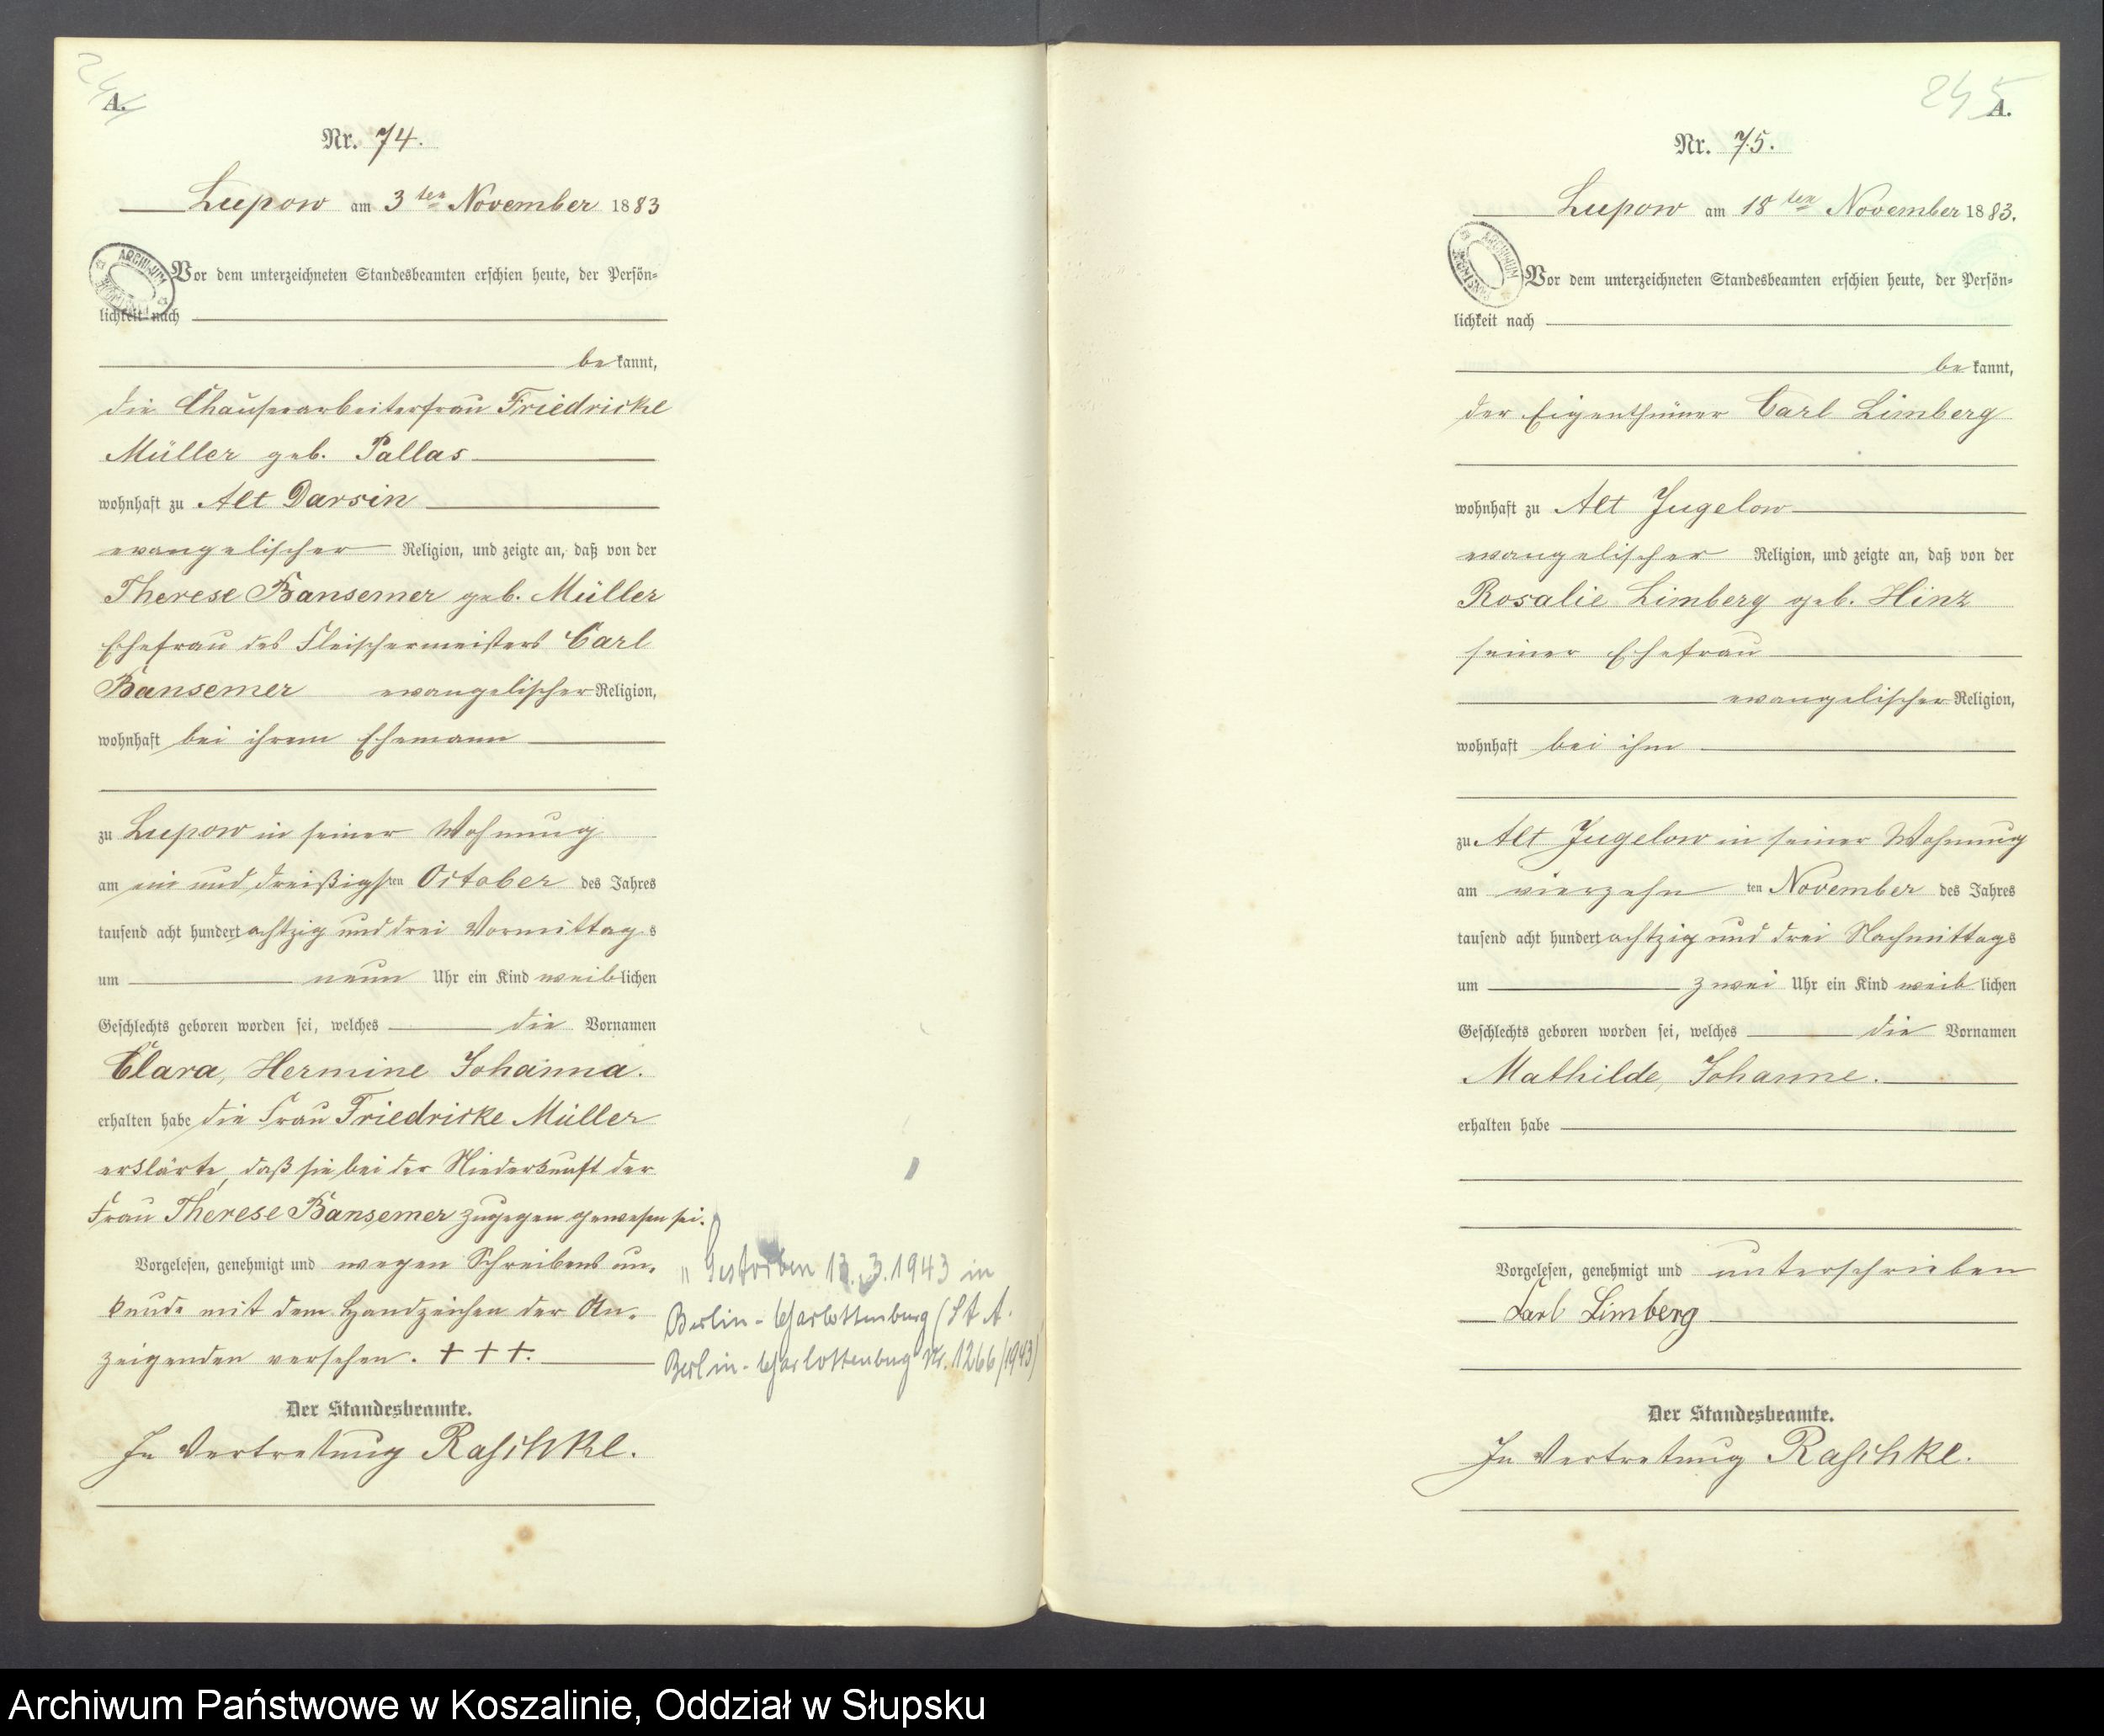 244
A.
Nr. 74.
Lupow am 3ten November 1883
ARCHIWUM
Vor dem unterzeichneten Standesbeamten erschien heute, der Persön=
lichkeit nach
bekannt,
die Chausseearbeiterfrau Friedricke
Müller geb. Pallas
wohnhaft zu Alt Darsin
evangelischer Religion, und zeigte an, daß von der
Therese Bansemer geb. Müller
Ehefrau des Fleischermeisters Carl
Bansemer evangelischer Religion,
wohnhaft bei ihrem Ehemann
zu Lupow in seiner Wohnung
am ein und dreißigsten October des Jahres
tausend acht hundert achtzig und drei Vormittags
um neun Uhr ein Kind weiblichen
Geschlechts geboren worden sei, welches die Vornamen
Clara, Hermine Johanna.
erhalten habe die Frau Friedricke Müller
erklärte, daß sie bei der Niederkunft der
Frau Therese Bansemer zugegen gewesen sei.
Vorgelesen, genehmigt und wegen Schreibens un=
kunde mit dem Handzeichen der An=
zeigenden versehen. + + +.
Der Standesbeamte.
In Vertretung Raschke.
" Gestorben 3.1943 in
Berlin-Charlottenburg (St A.
Berlin-Charlottenburg Nr. 1266/1943)
245
A.
Nr. 75.
Lupow am 18ten November 1883.
ARCHIWUM
Vor dem unterzeichneten Standesbeamten erschien heute, der Persön=
lichkeit nach
bekannt,
der Eigenthümer Carl Limberg
wohnhaft zu Alt Jugelow
evangelischer Religion, und zeigte an, daß von der
Rosalie Limberg geb. Hinz
seiner Ehefrau
evangelischer Religion,
wohnhaft bei ihm
zu Alt Jugelow in seiner Wohnung
am vierzehnten November des Jahres
tausend acht hundert achtzig und drei Nachmittags
um zwei Uhr ein Kind weiblichen
Geschlechts geboren worden sei, welches die Vornamen
Mathilde, Johanne.
erhalten habe
Vorgelesen, genehmigt und unterschrieben
Carl Limberg
Der Standesbeamte.
In Vertretung Raschke.
Archiwum Państwowe w Koszalinie, Oddział w Słupsku